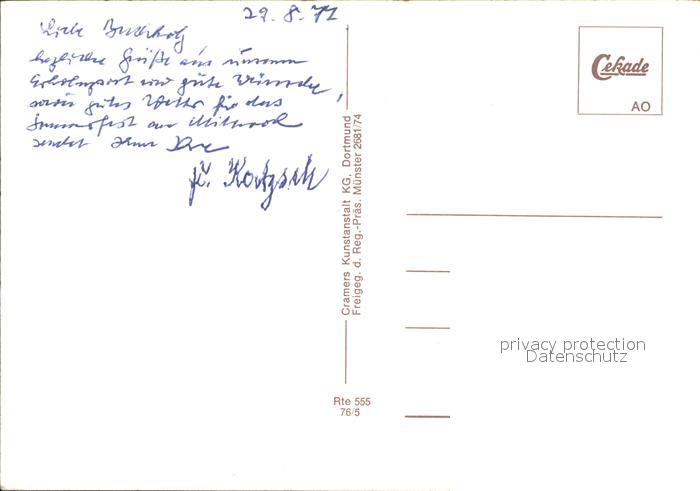 29. 8. 77
Liebe
herzliche Grüße aus unserem
und gute Wünsche,
gutes Wetter für das
Sommerfest am Mittwoch
sendet Ihnen Ihre
Cekade
AO
Cramers Kunstanstalt KG, Dortmund
Freigeg. d. Reg.-Präs. Münster 2681/74
Rte 555
76/5
privacy protection
Datenschutz